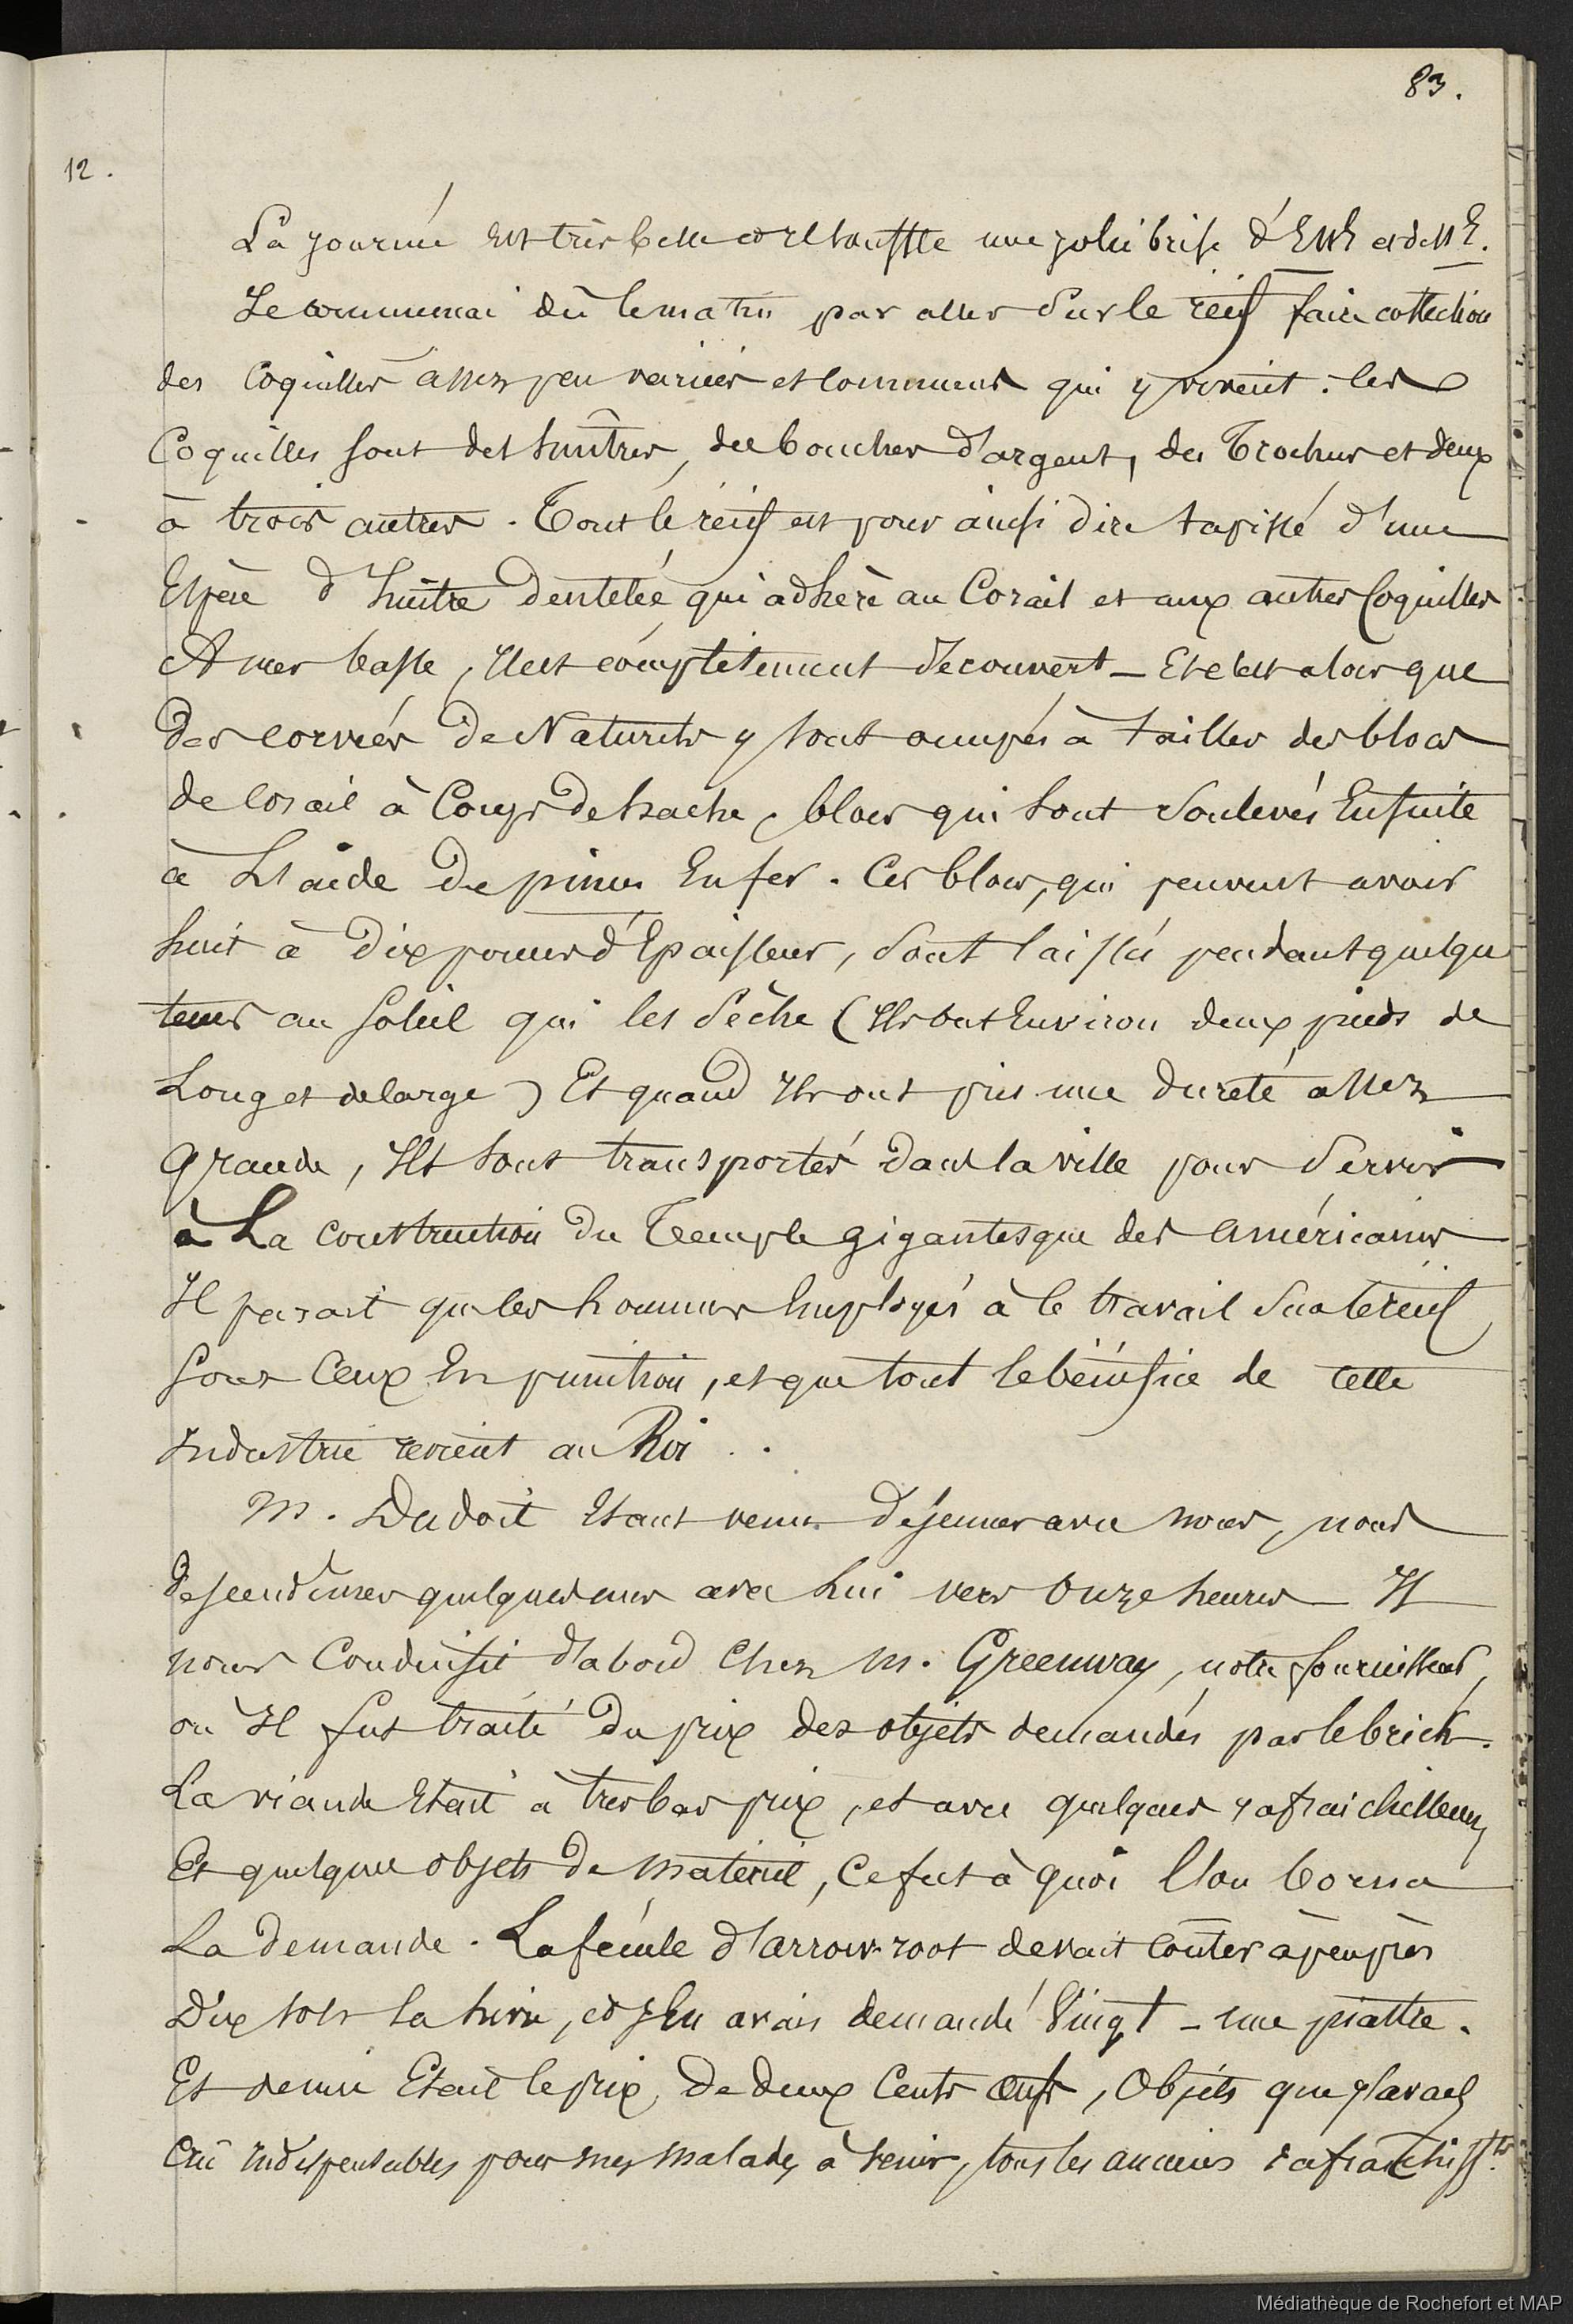 83.
12.
La journée est très belle et Il souffle une jolie brise d'ENE et de NE.
Je commençai dès le matin par aller sur le récif faire collection
des Coquilles assez peu variées et communes qui y vivent : les
Coquilles sont des huîtres, des bouches d'argent, des Trochus et deux
à trois autres. Tout le récif est pour ainsi dire tapissé d'une
Espèce d'huître dentelée qui adhère au Corail et aux autres Coquilles
A mer basse, Il est complètement découvert – Et c'est alors que
Des corvées de Naturels y sont occupés à tailler des blocs
de Corail à Coups de hache, blocs qui sont soulevés Ensuite
à L'aide de pinces En fer. Ces blocs, qui peuvent avoir
huit à dix pouces d'Epaisseur, sont laissés pendant quelque
tems au soleil qui les sèche (Ils ont Environ deux pieds de
Long et de large) Et quand Ils ont pris une dureté assez
grande, Ils sont transportés dans la ville pour servir
à La construction du Temple gigantesque des américains
Il parait que les hommes Employés à ce travail sur le récif
sont Ceux En punition, et que tout le bénéfice de cette
Industrie revient au Roi . .
M. Dudoit Etant venu déjeuner avec nous, nous
descendîmes quelques uns avec lui vers Onze heures – Il
nous Conduisit d'abord Chez M. Greenway, notre fournisseur,
où Il fut traité du prix des objets demandés par le brick.
La viande Etait à très bas prix, et avec quelques rafraichissem
Et quelques objets de matériel, Ce fut à quoi l'on borna
La demande. La fécule d'arrow-root devait Coûter à peu près
Dix sols la livre, et J'En avais demandé Vingt – une piastre.
Et demie Etait le prix de deux Cents œufs, Objets que j'avais
Crû Indispensables pour mes malades à venir, tous les anciens rafraichiss.ts
Médiathèque de Rochefort et MAP